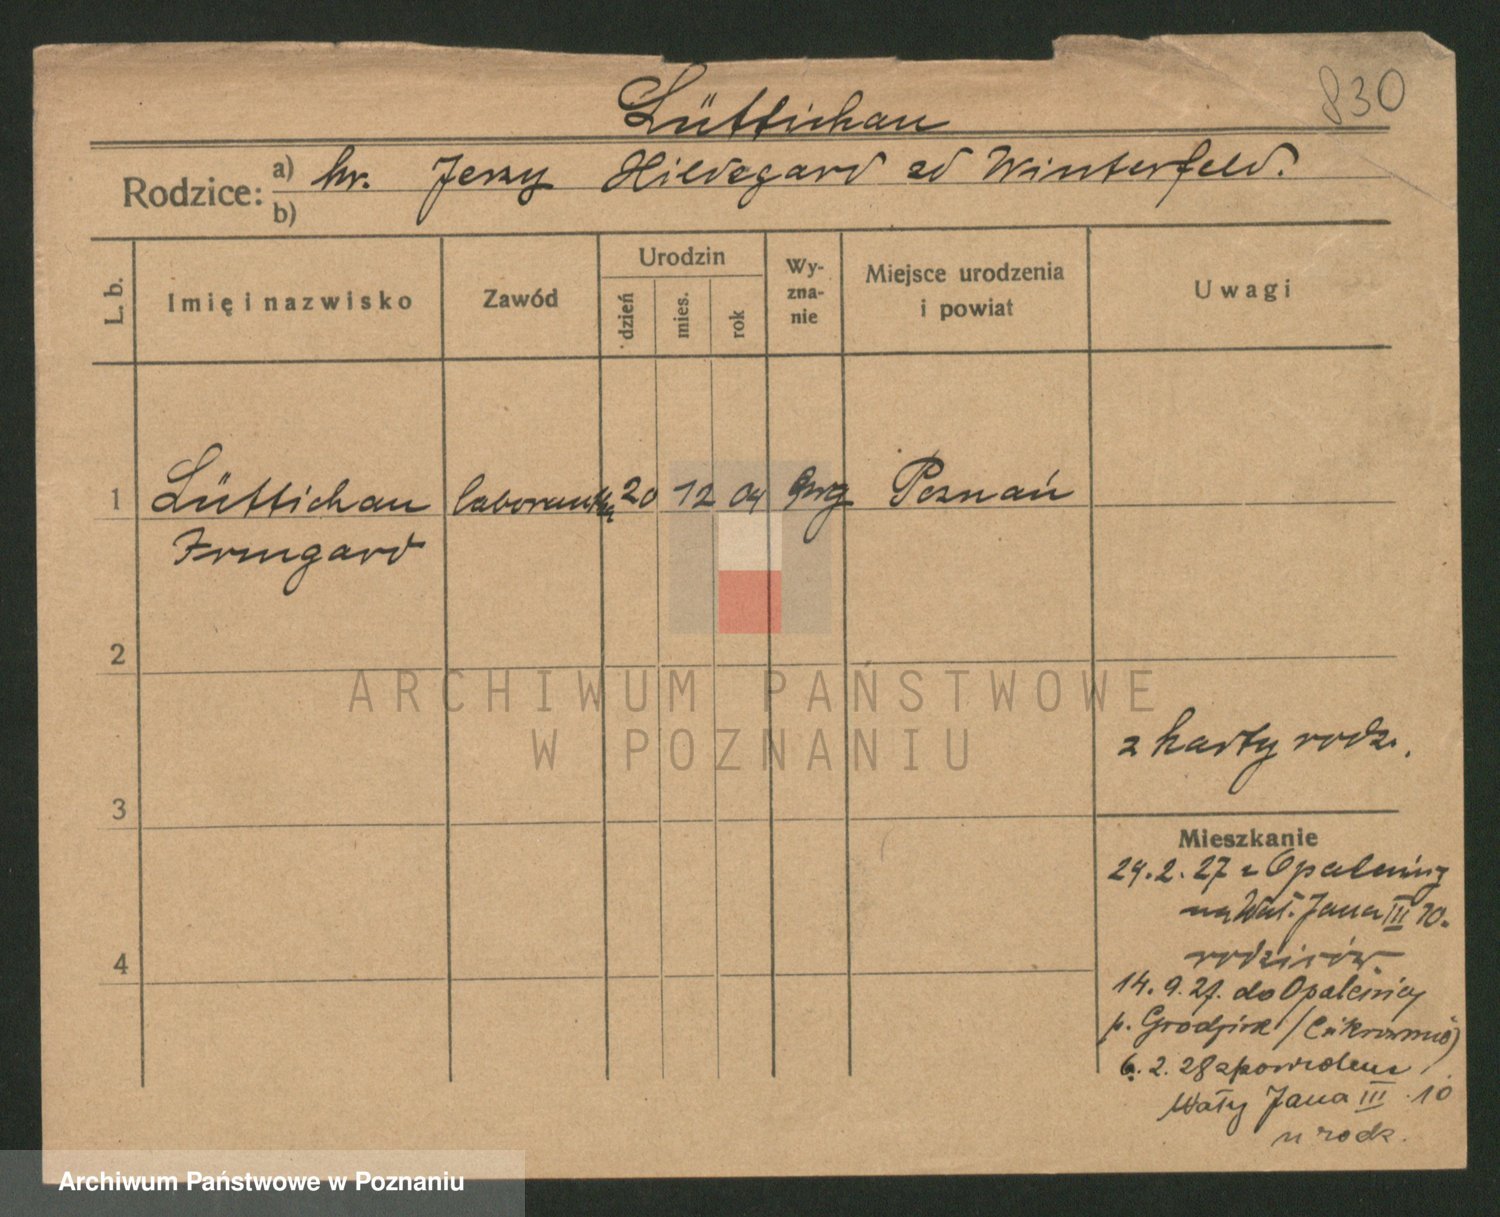 830
Lüttichau
Rodzice: a) hr. Jerzy Hildegard zd Winterfeld.
b)
L. b.
Imię i nazwisko
Zawód
Urodzin
dzień
mies.
rok
Wy-
zna-
nie
Miejsce urodzenia
i powiat
Uwagi
1 Lüttichau laborantka 20 12 04 ewg Poznań
Irmgard
2
z karty rodz.
3
Mieszkanie
24.2.27 z Opalenicy
na Wał. Jana III 10.
rodziców.
4
14.9.27. do Opalenicy
p. Grodzisk /Cukrownia)
6.2.28 zpowrotem
Wały Jana III 10
u rodz.
ARCHIWUM PAŃSTWOWE
W POZNANIU
Archiwum Państwowe w Poznaniu